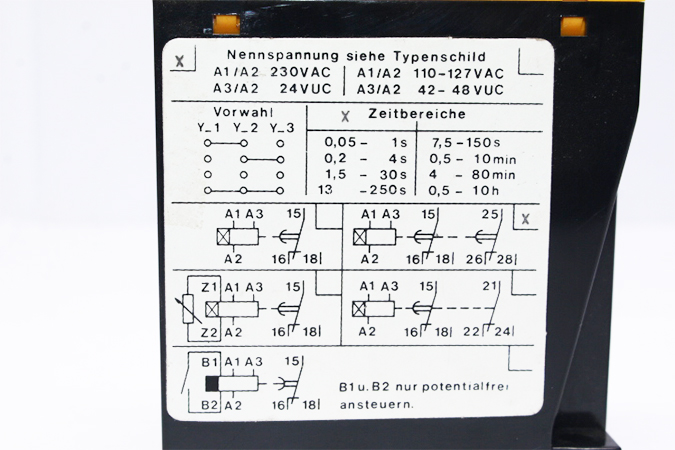 X Nennspannung siehe Typenschild
A1/A2 230VAC A1/A2 110-127VAC
A3/A2 24VUC A3/A2 42-48VUC
Vorwahl X Zeitbereiche
Y_1 Y_2 Y_3
0,05 - 1s 7,5-150s
0,2 - 4s 0,5 - 10min
1,5 - 30s 4 - 80min
13 -250s 0,5 - 10h
A1 A3 15 A1 A3 15 25 X
A2 16 18 A2 16 18 26 28
Z1 A1 A3 15 A1 A3 15 21
Z2 A2 16 18 A2 16 18 22 24
B1 A1 A3 15
B1u. B2 nur potentialfrei
B2 A2 16 18 ansteuern.